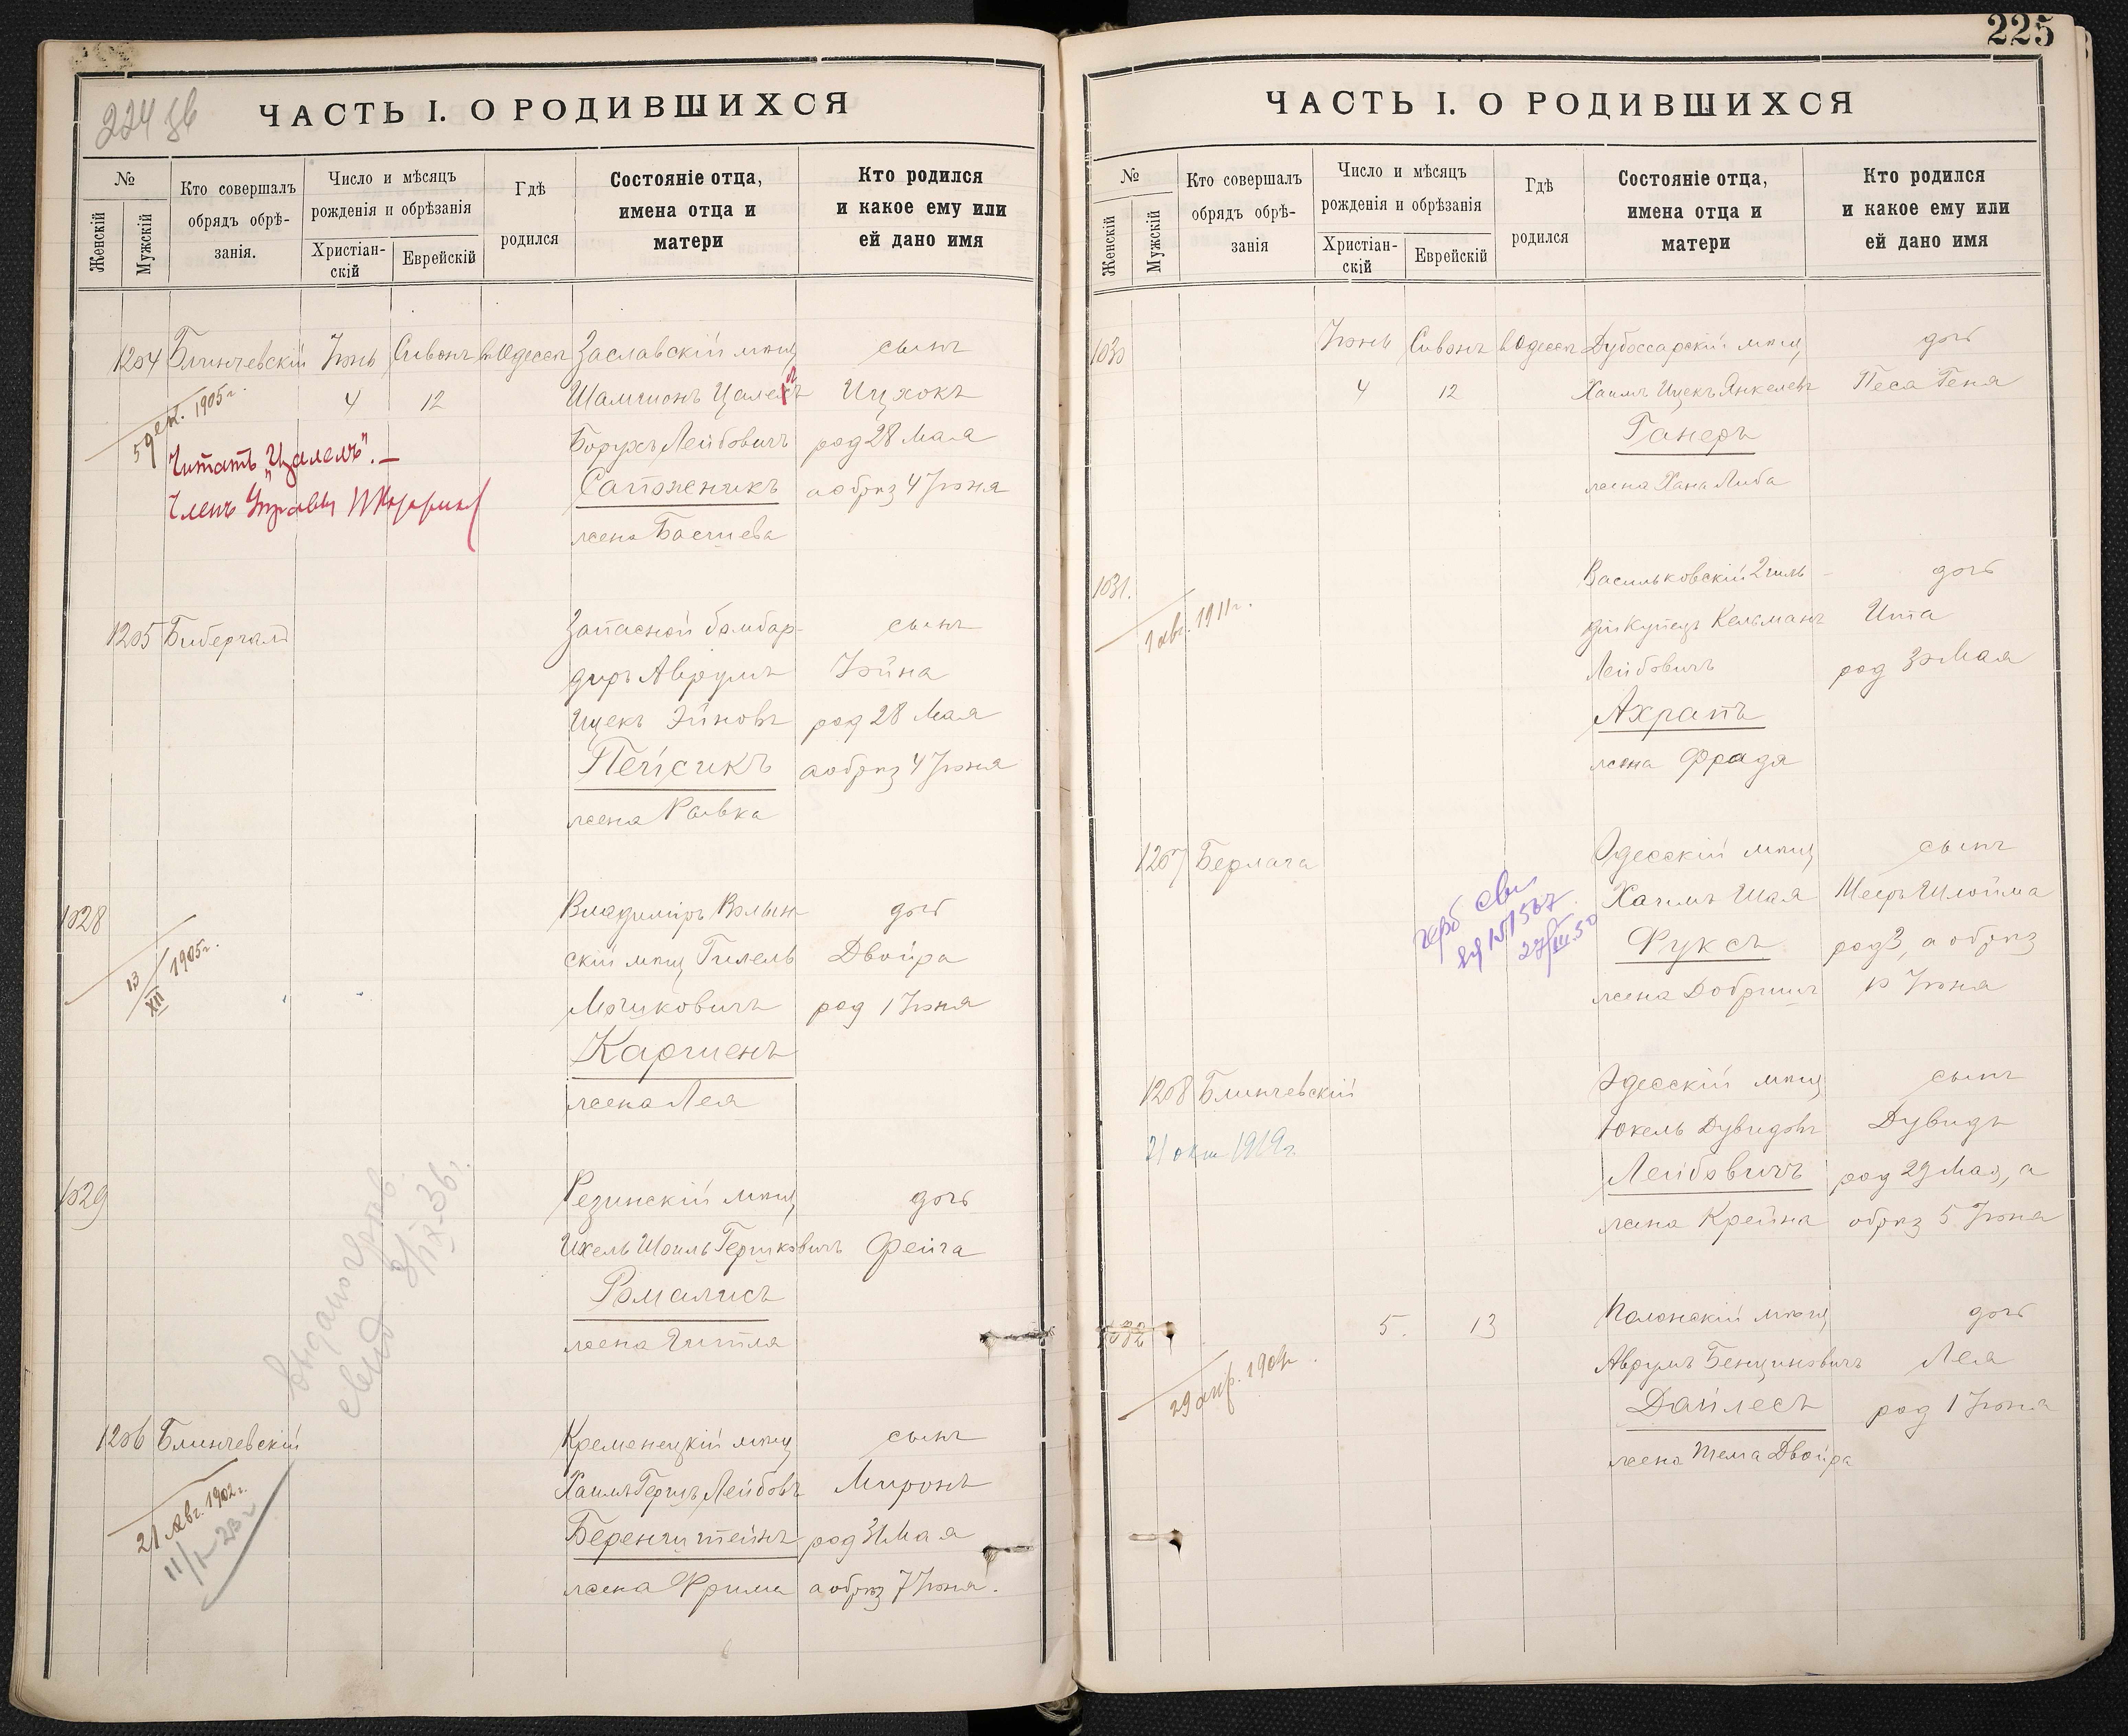 224 об
ЧАСТЬ I. О РОДИВШИХСЯ
№
Женскій
Мужскій
Кто совершалъ
обрядъ обрѣ-
занія.
Число и мѣсяцъ
рожденія и обрѣзанія
Христіан-
скій
Еврейскій
Гдѣ
родился
Состояніе отца,
имена отца и
матери
Кто родился
и какое ему или
ей дано имя
1204 Блинчевскій Іюнь Сивонъ въ Одессѣ Заславскій мѣщ сынъ
4 12 Шамшонъ Ицхокъ
5 дек. 1905 г.
Борухъ Лейбовичъ род 28 Мая
Читать "Цалелъ".—
Сапожникъ а обрѣз 4 Іюня
Членъ Управы
жена Басшева
1205 Запасной бомбар- сынъ
диръ Аврумъ Іойна
Ицекъ Эйновъ род 28 Мая
Пейсикъ а обрѣз 4 Іюня
жена Ривка
1028 Владиміръ Волын- дочь
13/XII 1905 г.
скій мѣщ Гилель Двойра
Мошковичъ род 1 Іюня
Каршенъ
жена Лея
1029 Резинскій мѣщ дочь
Ихель Шоиль Гершковичъ Фейга
Ромалисъ
жена Гитля
свид
1206 Блинчевскій Кременецкій мѣщ сынъ
21 авг. 1902 г.
Хаимъ Гершъ Лейбовъ Миронъ
Беренштейнъ род 31 Мая
жена Фрима а обрѣз 7 Іюня.
225
ЧАСТЬ I. О РОДИВШИХСЯ
№
Женскій
Мужскій
Кто совершалъ
обрядъ обрѣ-
занія
Число и мѣсяцъ
рожденія и обрѣзанія
Христіан-
скій
Еврейскій
Гдѣ
родился
Состояніе отца,
имена отца и
матери
Кто родился
и какое ему или
ей дано имя
1030 Іюнь Сивонъ въ Одессѣ Дубоссарскій мѣщ дочь
4 12 Хаимъ Ицекъ Янкелевъ Песа Геня
Ганеръ
жена Хана Либа
1031. Васильковскій 2 гиль- дочь
1 авг. 1911 г.
діи купецъ Кельманъ Ита
Лейбовичъ род 30 Мая
Ахрапъ
жена Фрадя
1207 Берлага Одесскій мѣщ сынъ
Хаимъ Шая Мееръ Шлойма
Фуксъ род 3, а обрѣз
жена Добришъ 10 Іюня
1208 Блинчевскій Одесскій мѣщ сынъ
21 окт 1919 г.
Юкель Дувидовъ Дувидъ
Лейбовичъ род 29 Мая, а
жена Крейна обрѣз 5 Іюня
1032 5. 13 Полонскій мѣщ дочь
Аврумъ Бенціновичъ Лея
Дайлесъ род 1 Іюня
жена Тема Двойра